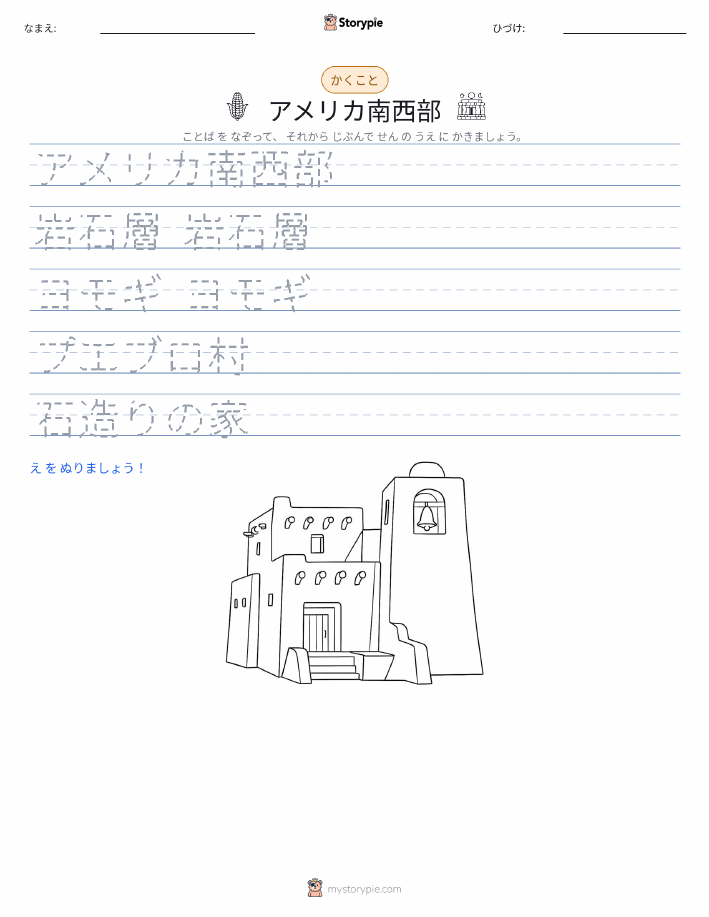 なまえ:
Storypie
ひづけ:
かくこと
アメリカ南西部
ことば を なぞって、 それから じぶんで せん の うえ に かきましょう。
アメリカ南西部
岩石層 岩石層
ヨモギ ヨモギ
プエブロ村
石造りの家
え を ぬりましょう！
mystorypie.com